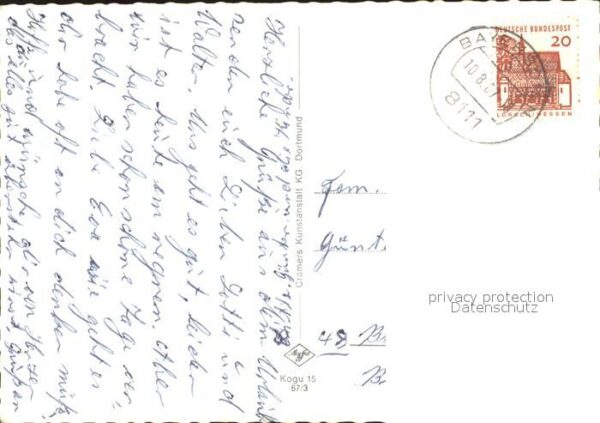 Herzliche Grüße aus dem Urlaub
senden euch Lieben Dotti u
Walter. Uns geht es gut, leider
ist es heute am regnen, aber
wir haben schon schöne Tage ver-
bracht. Liebe Eva wie geht es
dir habe oft an dich denken müß
Hoffe und wünsche dir von Herzen
das alles gut
Cramers Kunstanstalt KG. Dortmund
Kogu 15
67/3
DEUTSCHE BUNDESPOST
20
LORSCH/HESSEN
10.8.
8111
Fam.
Günt
48 B
B
privacy protection
Datenschutz